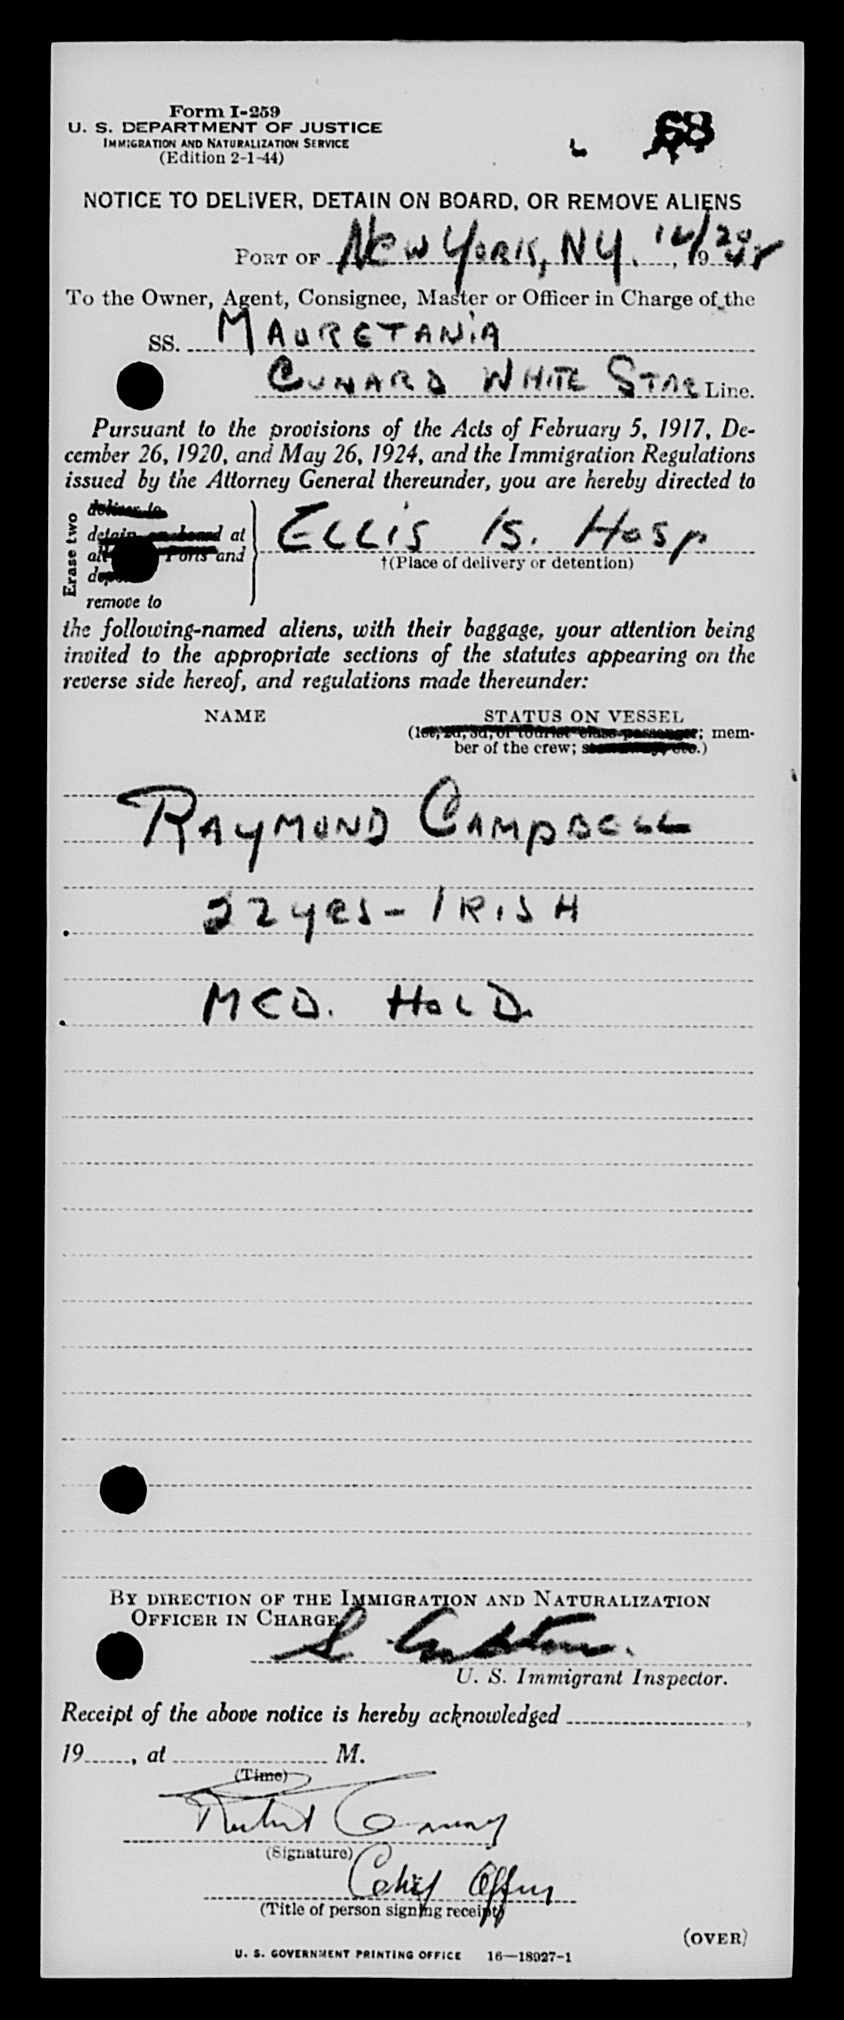 Form I-259
U. S. DEPARTMENT OF JUSTICE
IMMIGRATION AND NATURALIZATION SERVICE
(Edition 2-1-44)
68
NOTICE TO DELIVER, DETAIN ON BOARD, OR REMOVE ALIENS
PORT OF NEW YORK, NY. 19
To the Owner, Agent, Consignee, Master or Officer in Charge of the
SS. MAURETANIA
CUNARD WHITE STAR Line.
Pursuant to the provisions of the Acts of February 5, 1917, De-
cember 26, 1920, and May 26, 1924, and the Immigration Regulations
issued by the Attorney General thereunder, you are hereby directed to
Erase two
deliver to
detain on board at
Ports and
remove to
ELLIS IS. HOSP
†(Place of delivery or detention)
the following-named aliens, with their baggage, your attention being
invited to the appropriate sections of the statutes appearing on the
reverse side hereof, and regulations made thereunder:
NAME STATUS ON VESSEL
(1st, 2d, 3d, or tourist class passenger; mem-
ber of the crew; etc.)
RAYMOND CAMPBELL
22 yrs - IRISH
MED. HOLD.
BY DIRECTION OF THE IMMIGRATION AND NATURALIZATION
OFFICER IN CHARGE
S.
U. S. Immigrant Inspector.
Receipt of the above notice is hereby acknowledged
19, at M.
(Time)
(Signature)
Chief Officer
(Title of person signing receipt)
(OVER)
U. S. GOVERNMENT PRINTING OFFICE 16—18927-1